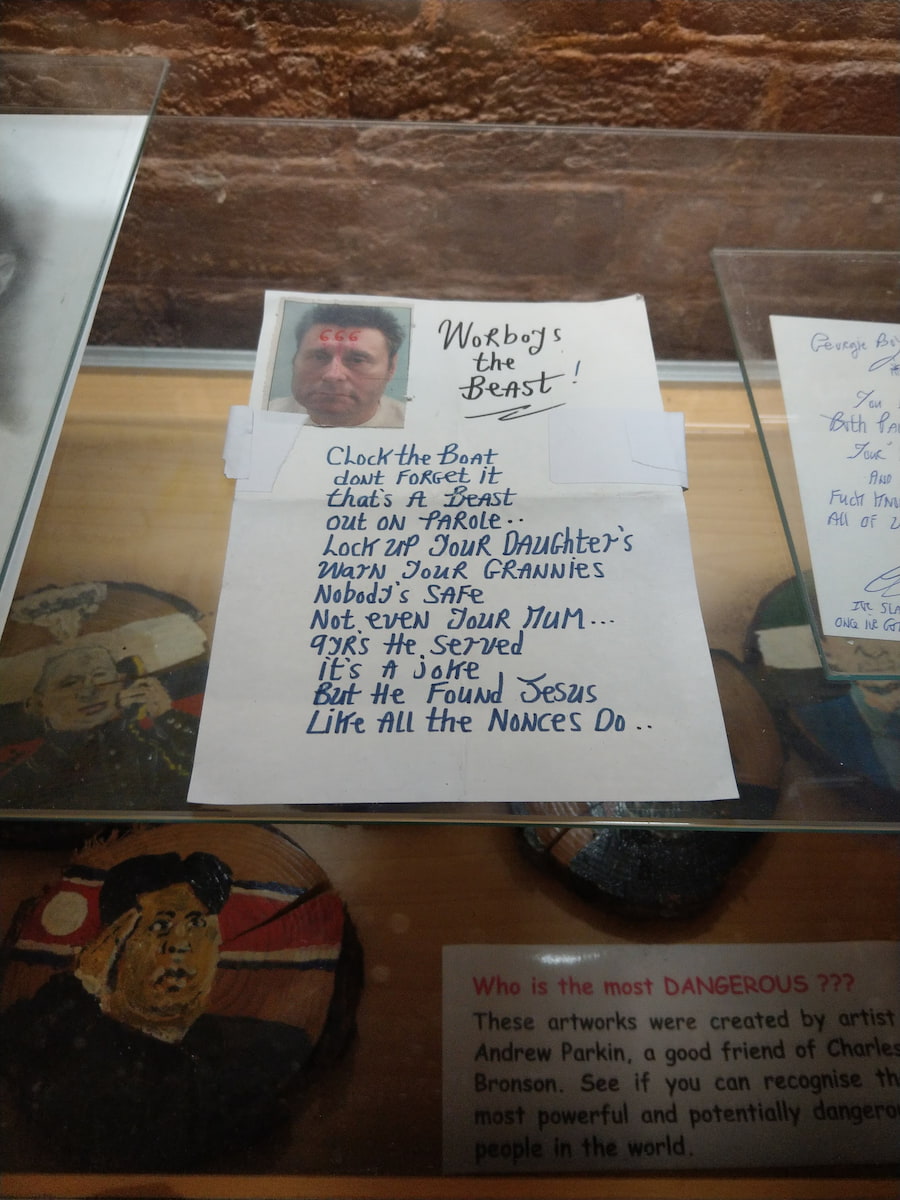 666
Worboys
the
Beast !
Clock the Boat
dont Forget it
that's A Beast
out on Parole..
Lock up Your Daughter's
Warn Your Grannies
Nobody's Safe
Not even Your Mum...
9yr's He Served
it's A joke
But He Found Jesus
Like All the Nonces Do..
Georgie
You
Both
Your
And
Fuck
All of
I've
Who is the most DANGEROUS ???
These artworks were created by artist
Andrew Parkin, a good friend of Charles
Bronson. See if you can recognise
most powerful and potentially
people in the world.